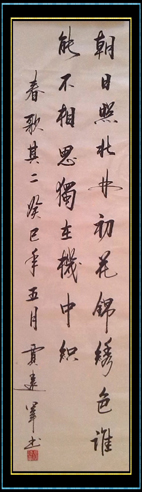 朝日照北林初花錦绣色誰
能不相思獨在機中织
春歌其二癸巳年五月贾建军书